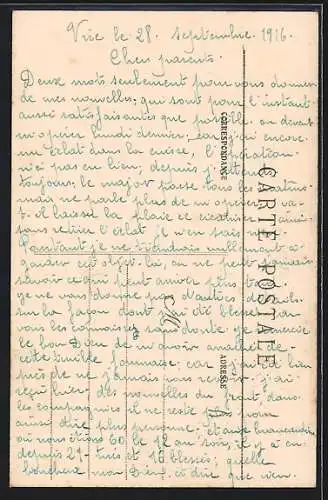 Vric le 28. septembre. 1916.
Chers parents.
Deux mots seulement pour vous donner
de mes nouvelles, qui sont pour l'instant
aussi satisfaisantes que possible. on devait
m'opérer lundi dernier, car j'ai encore
un éclat dans la cuisse, l'opération
n'ai pas eu lieu, depuis j'attends
toujours, le major passe tous les matins
mais ne parle plus de m'opérer, va-
t-il laisser la plaie ce cicatriser ainsi
sans retirer l'éclat je n'en sais rien
Pourtant je ne tiendrais nullement à
garder cet objet-là, on ne peut jamais
savoir ce qui peut arriver plus tard
je ne vous donne pas d'autres détails
sur la façon dont j'ai été blessé car
vous les connaissez sans doute je remercie
le bon Dieu de m'avoir arraché de
cette terrible fournaise, car j'ai été bien
près de ne jamais vous revoir. j'ai
reçu hier des nouvelles du front, dans
les compagnies il ne reste
ainsi dire plus personne. et aux brancardiers
ou nous étions 60 le 12 au soir, il y a eu
depuis 21 tués et 16 blessés, quelle
boucherie mon Dieu. et dire que rien
CORRESPONDANCE
CARTE POSTALE
ADRESSE
M